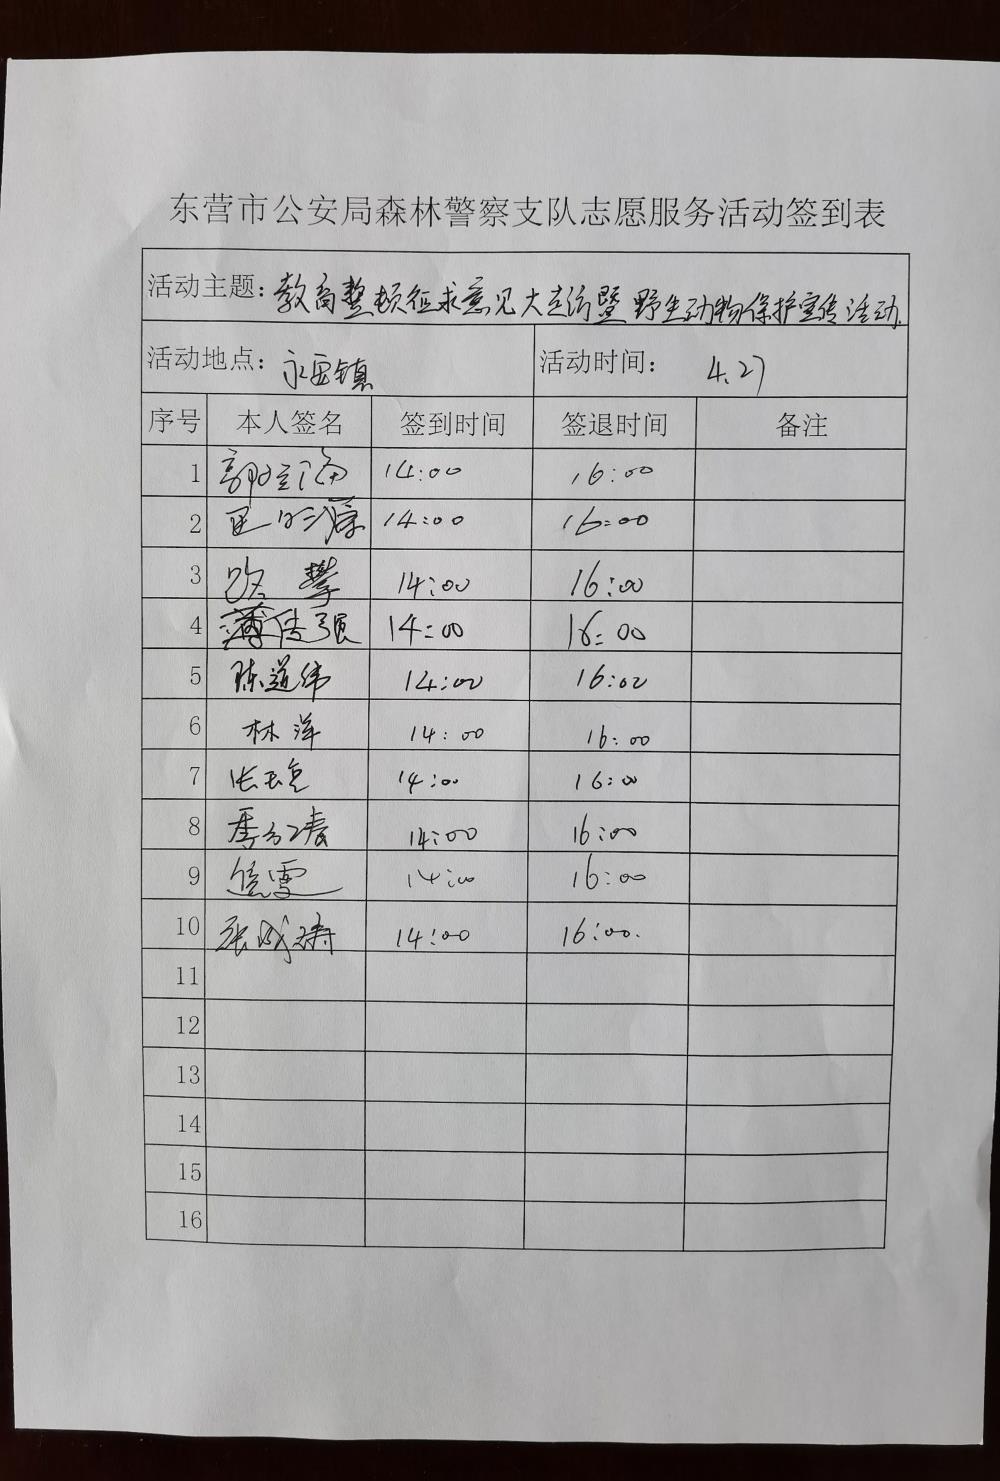 东营市公安局森林警察支队志愿服务活动签到表
活动主题：教育整顿征求意见大走访暨野生动物保护宣传活动.
活动地点：永安镇 活动时间： 4.27
序号 本人签名 签到时间 签退时间 备注
1 14:00 16:00
2 14:00 16:00
3 路攀 14:00 16:00
4 薄传强 14:00 16:00
5 陈道伟 14:00 16:00
6 林洋 14:00 16:00
7 14:00 16:00
8 14:00 16:00
9 14:00 16:00
10 张成涛 14:00 16:00.
11
12
13
14
15
16